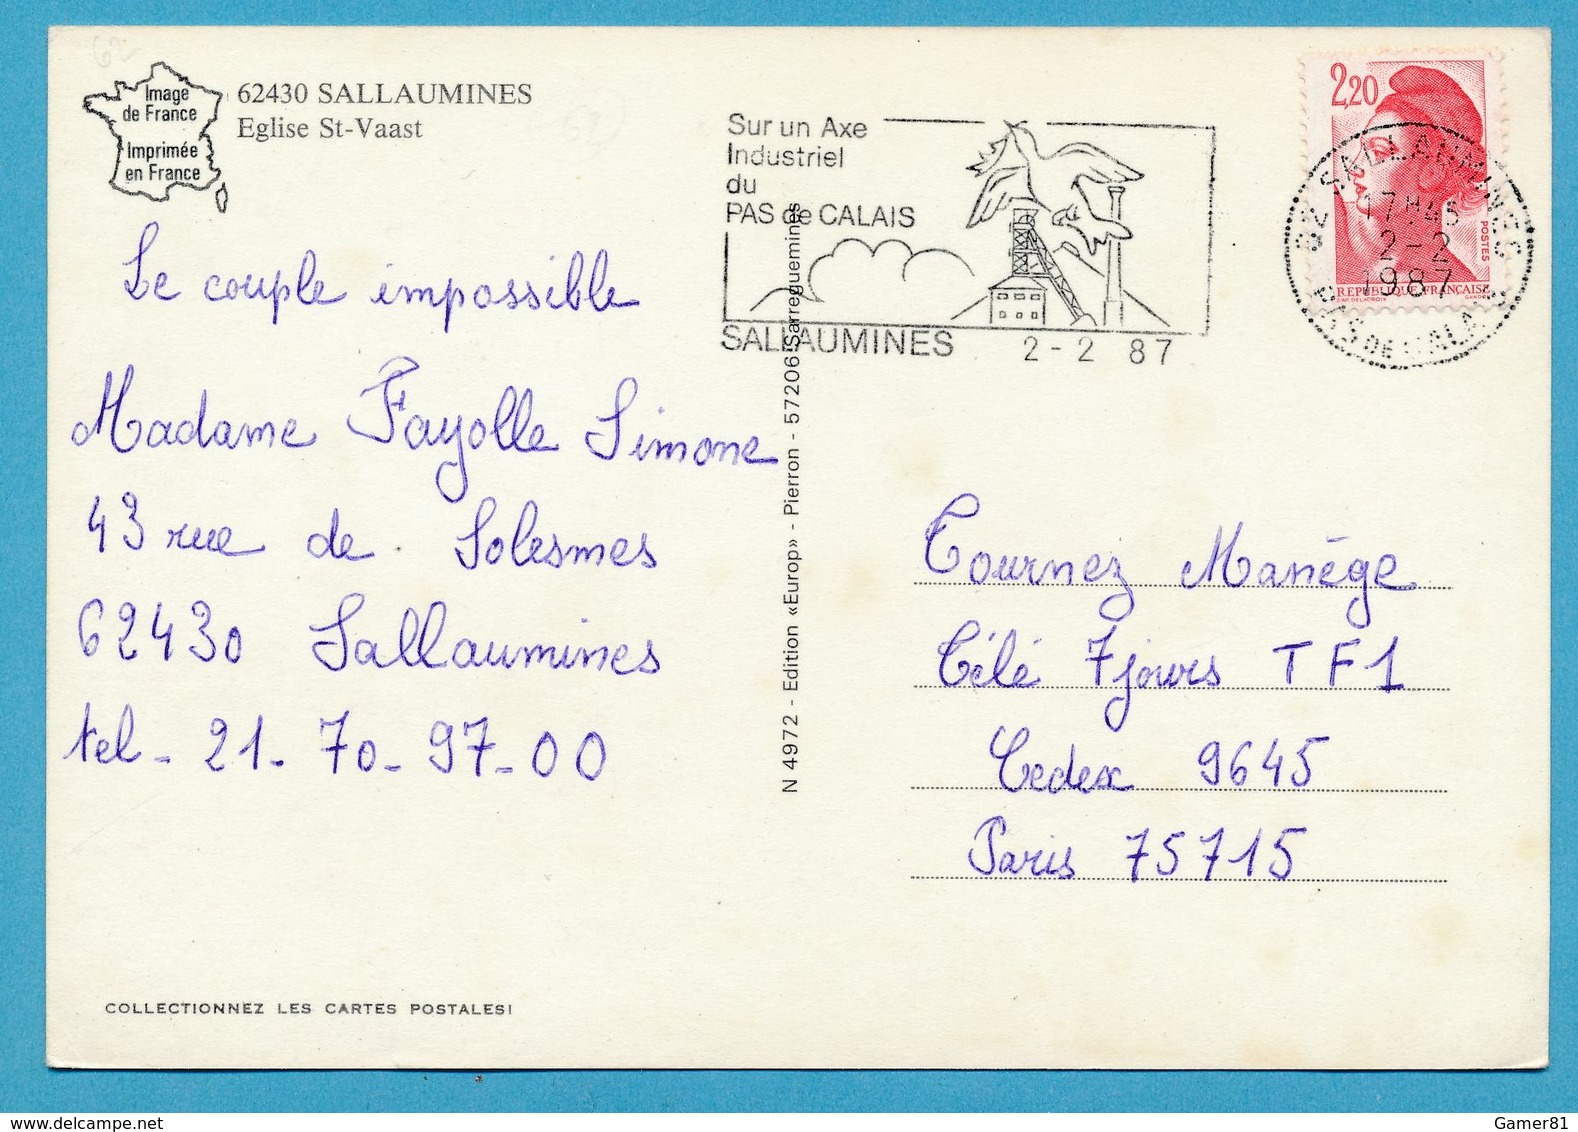 Image
de France
Imprimée
en France
62430 SALLAUMINES
Eglise St-Vaast
Sur un Axe
Industriel
du
PAS de CALAIS
SALLAUMINES 2 - 2 87
2,20
POSTES
REPUBLIQUE FRANÇAISE
D'AP. DELACROIX GANDON
62 SALLAUMINES
17H45
2-2
1987
PAS DE CALAIS
Le couple impossible
Madame Fayolle Simone
43 rue de Solesmes
62430 Sallaumines
tel - 21. 70 - 97 - 00
N 4972 - Edition «Europ» - Pierron - 57206 Sarreguemines
Tournez Manège
Télé 7 jours TF1
Cedex 9645
Paris 75715
COLLECTIONNEZ LES CARTES POSTALES!
Gamer81